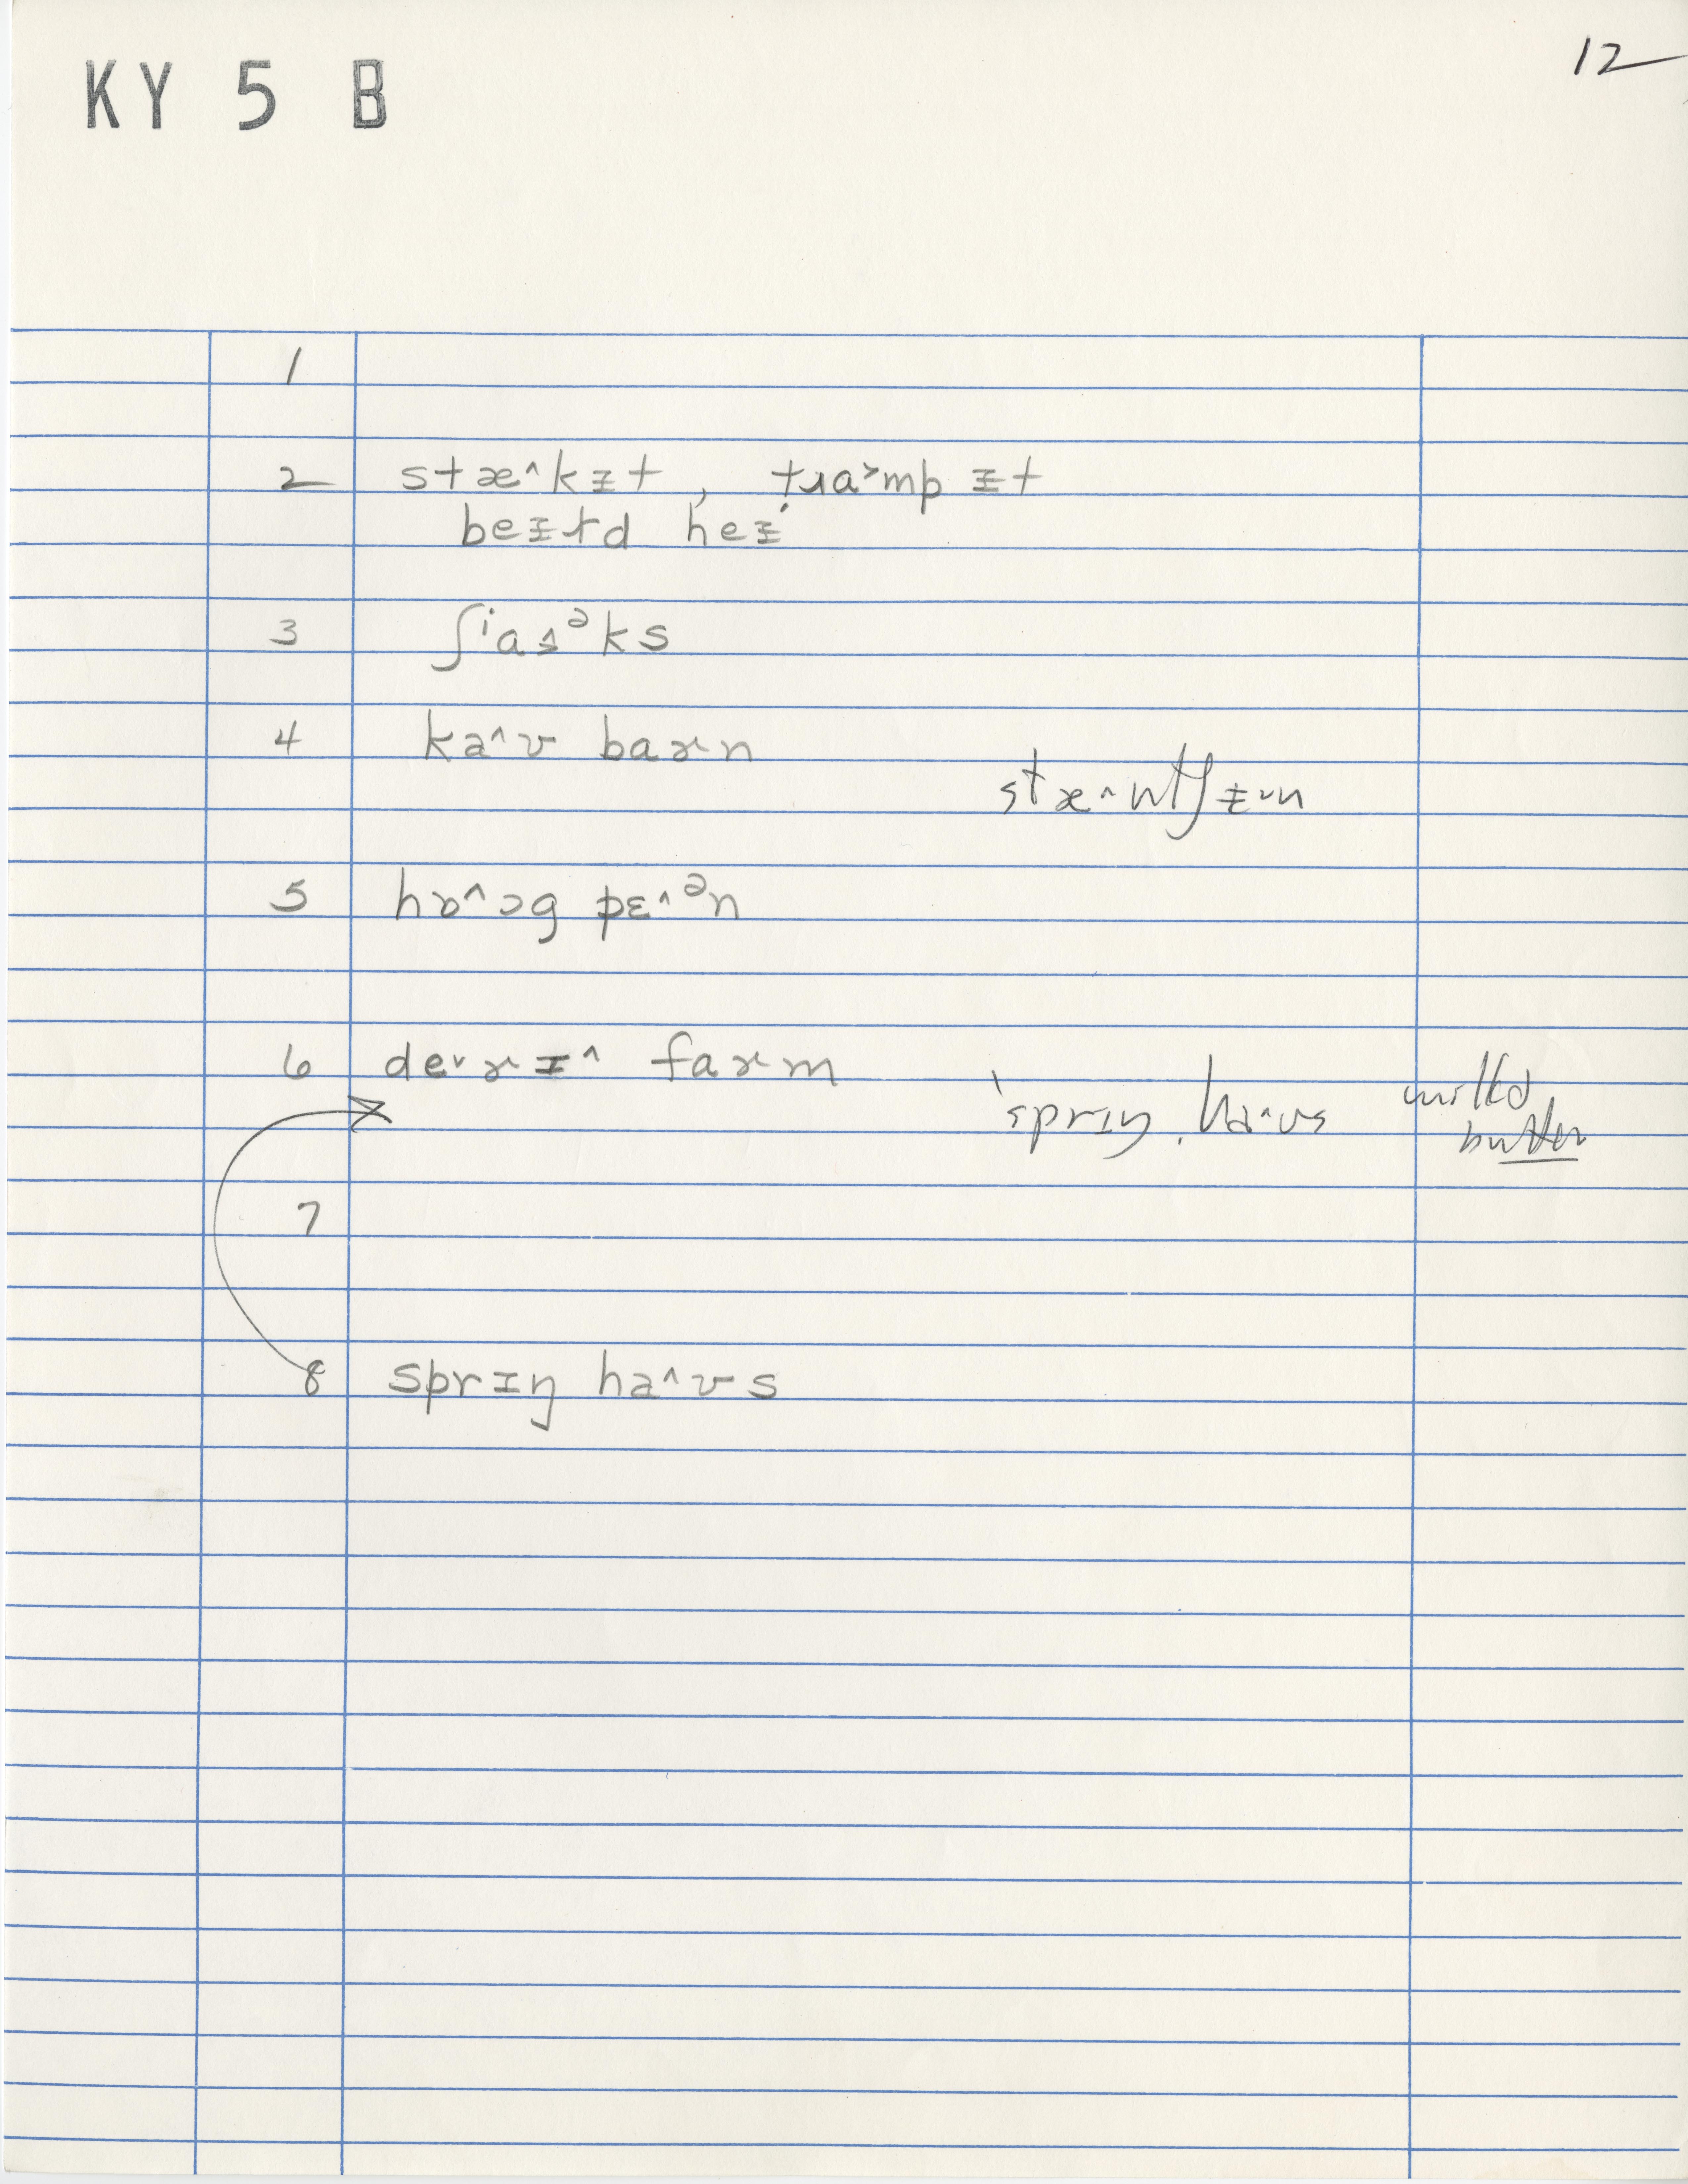 12
KY 5 B
1
2 stæ^kᵻt, tɹa>mp ᵻt
beᵻɫd heᵻ
3 ʃⁱas̯ᵊks
4 ka^ʊ baɚn
stæ^ntʃᵻ˅n
5 hɒ^ɔg pɛ^ᵊn
6 de˅ɚɪ^ farm
ˈsprɪŋ ˌha^ʊs milk
butter
7
8 sprɪŋ ha^ʊs